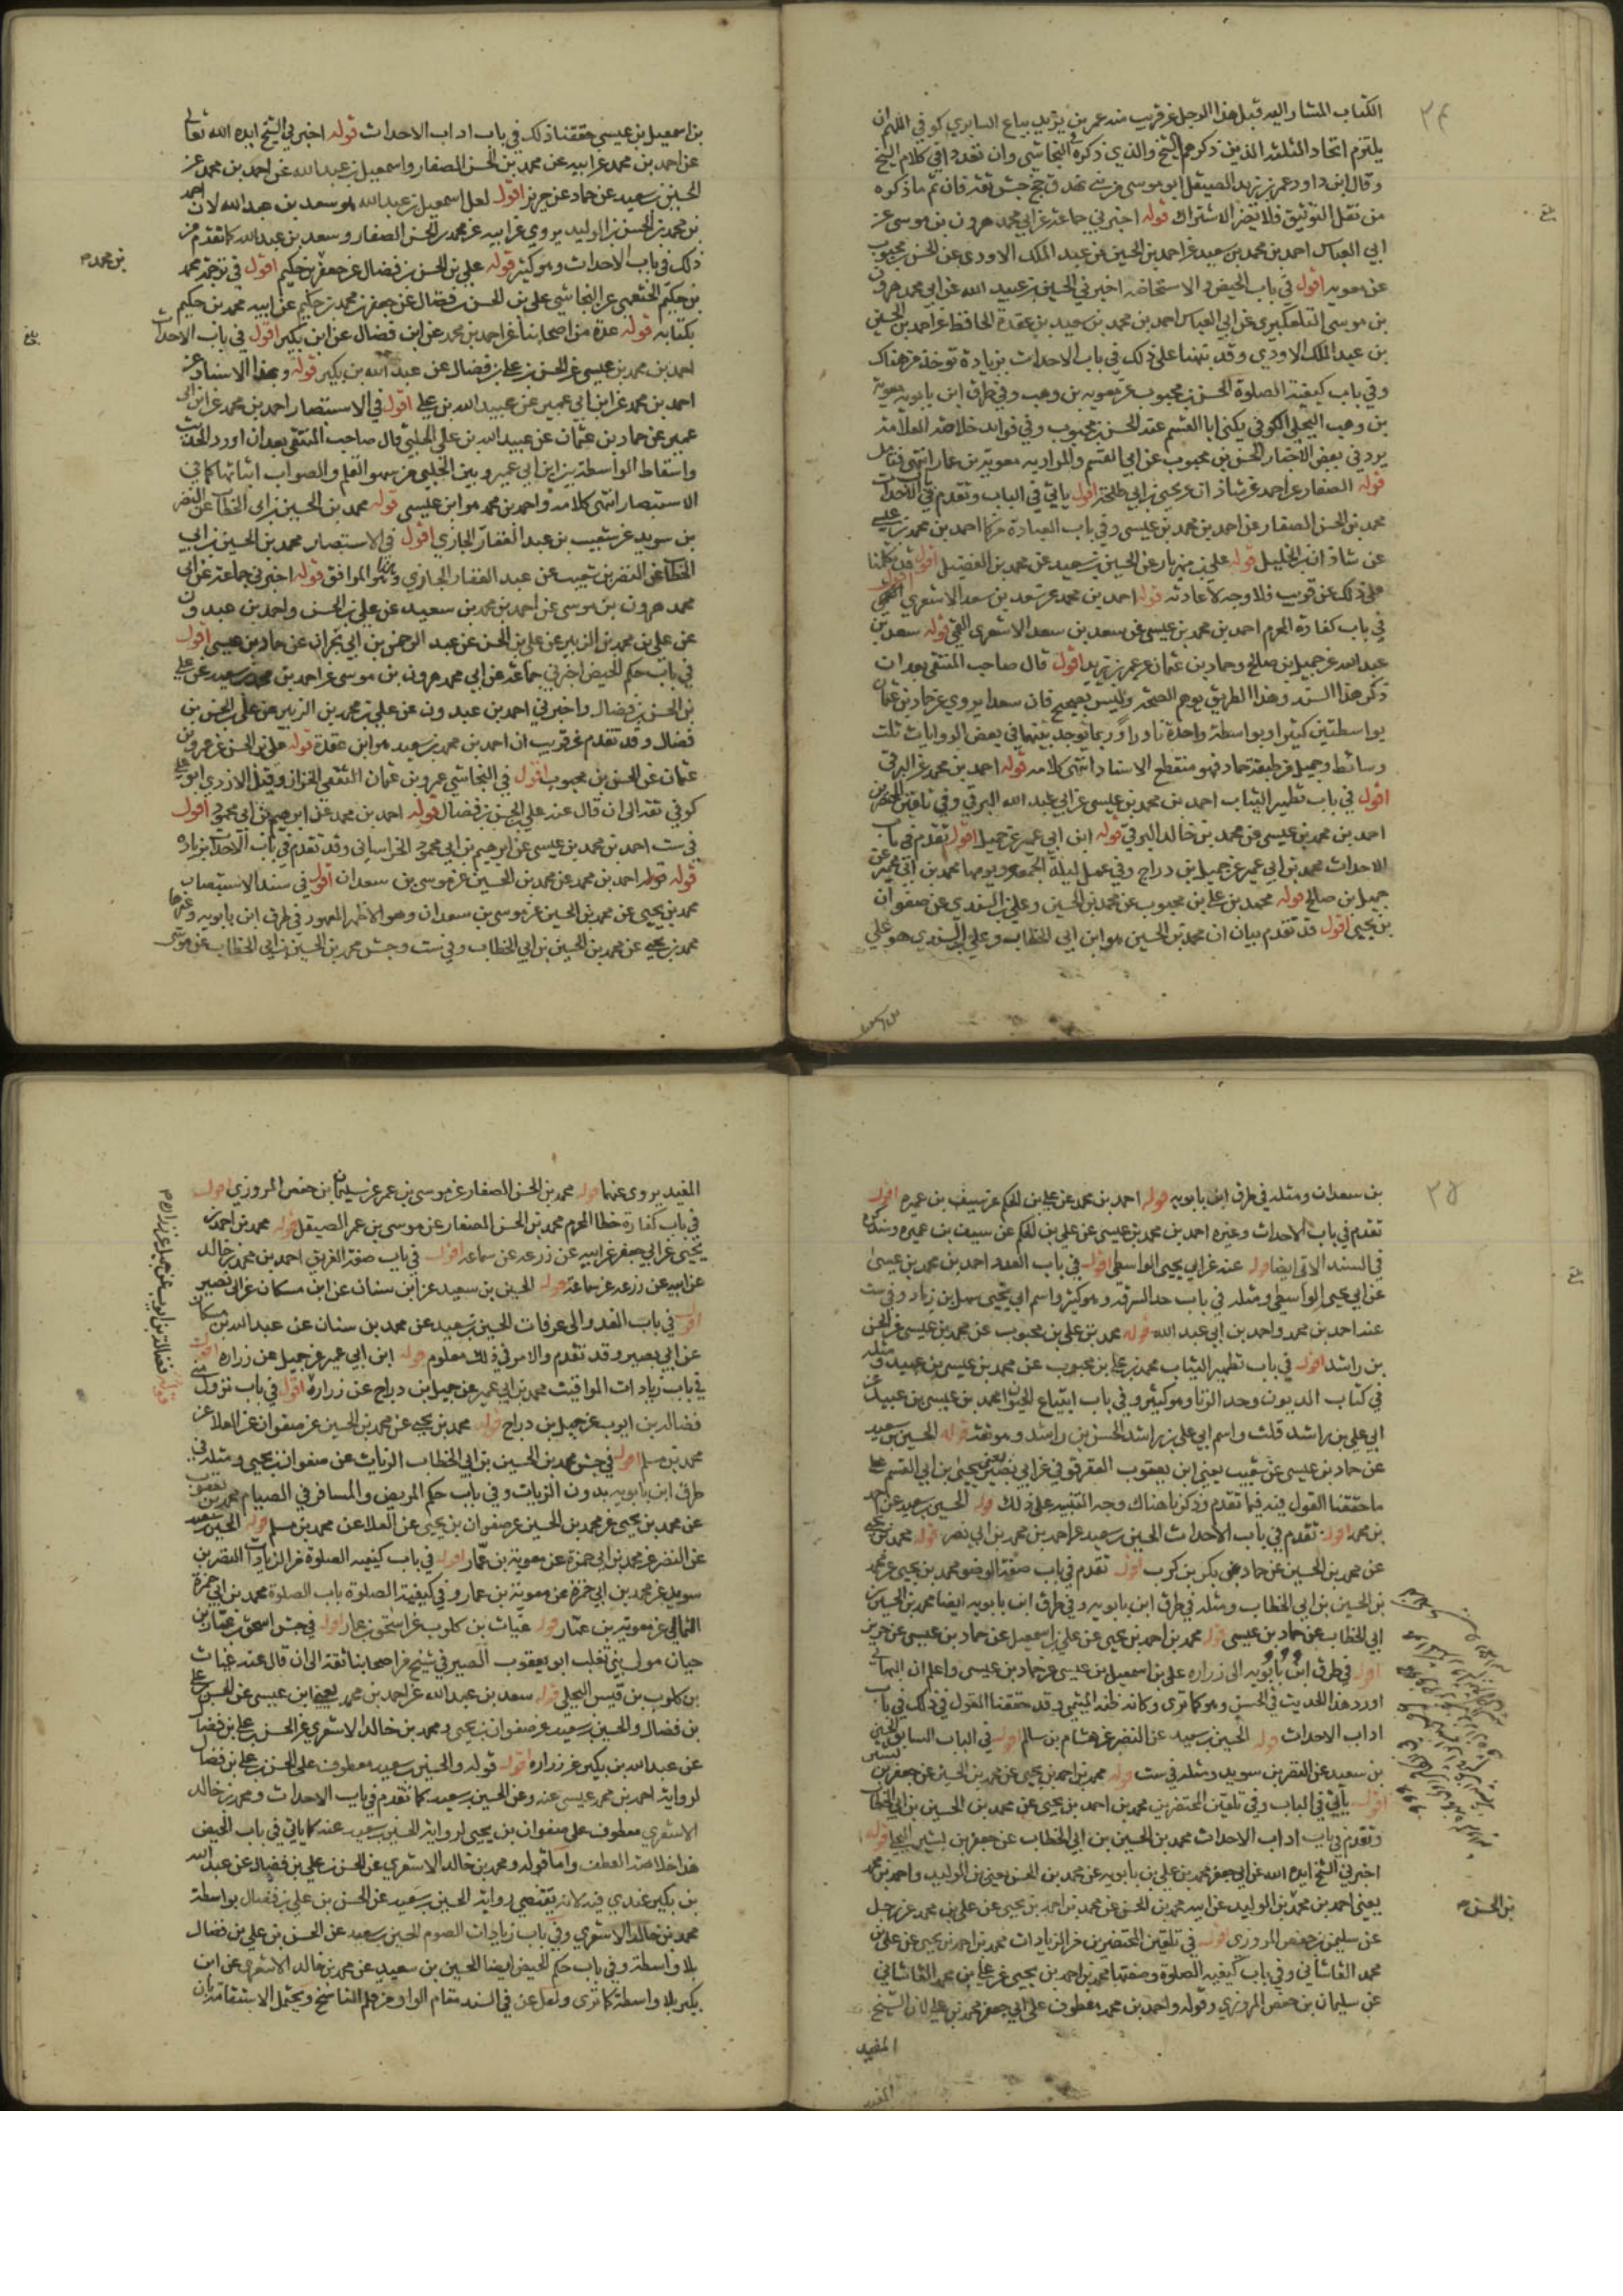 ٣٤
الكتاب المشار اليه قبل هذا الرجل عن قريب منه عمر بن يزيد بياع السابري كوفي اللهم ان
يلتزم اتحاد الثلثة الذين ذكرهم الشيخ والذي ذكره النجاشي وان تعددا في كلام الشيخ
وقال ابن داود عمر بن يزيد الصيقل ابو موسى جش ثقة فان تم ما ذكره
من نقل التوثيق فلا يضر الاشتراك قوله اخبرني جماعة عن ابي محمد هرون بن موسى عن
ابي العباس احمد بن محمد بن سعيد عن احمد بن الحسين عن عبد الملك الاودي عن الحسن بن محبوب
عن معويه اقول في باب الحيض والاستحاضه اخبرني الحسين بن عبيد الله عن ابي محمد هرون
بن موسى التلعكبري عن ابي العباس احمد بن محمد بن سعيد بن عقدة الحافظ عن احمد بن الحسين
بن عبد الملك الاودي وقد نبهنا على ذلك في باب الاحداث بزيادة توخذ من هناك
وفي باب كيفية الصلوة الحسن بن محبوب عن معويه بن وهب وفي طرق ابن بابويه معوية
بن وهب البجلي الكوفي يكنى ابا القسم عنه الحسن بن محبوب وفي فوايد خلاصة العلامة
يرد في بعض الاخبار الحسن بن محبوب عن ابي القسم والمراد به معوية بن عمار انتهى فتأمل
قوله الصفار عن احمد عن شاذان عن يحيى بن ابي طلحة اقول ياتي في الباب وتقدم في الاحداث
محمد بن الحسن الصفار عن احمد بن محمد بن عيسى وفي باب العبادة احمد بن محمد بن عيسى
عن شاذان بن الخليل قوله علي بن مهزيار عن الحسين بن سعيد عن محمد بن الفضيل اقول قد تكلمنا
على ذلك عن قريب فلا وجه لاعادته قوله احمد بن محمد عن سعد بن سعد الاشعري القمي اقول
في باب كفارة المحرم احمد بن محمد بن عيسى عن سعد بن سعد الاشعري القمي قوله سعد بن
عبد الله عن جميل بن صالح وحماد بن عثمان عن عمر بن يزيد اقول قال صاحب المنتقى بعد ان
ذكر هذا السند وهذا الطريق يوهم الصحة وليس بصحيح فان سعدا يروي عن حماد بن عثمان
بواسطتين كثيرا وبواسطة واحدة نادرا وربما توجد بينهما في بعض الروايات ثلث
وسائط وجميل من طبقة حماد فهو منقطع الاسناد انتهى كلامه قوله احمد بن محمد عن البرقي
اقول في باب تطهير الثياب احمد بن محمد بن عيسى عن ابي عبد الله البرقي وفي تلقين المحتضرين
احمد بن محمد بن عيسى عن محمد بن خالد البرقي قوله ابن ابي عمير عن جميل اقول تقدم في باب
الاحداث محمد بن ابي عمير عن جميل بن دراج وفي عمل ليلة الجمعه ويومها محمد بن ابي عمير عن
جميل بن صالح قوله محمد بن علي بن محبوب عن محمد بن الحسين وعلي بن السندي عن صفوان
بن يحيى اقول قد تقدم بيان ان محمد بن الحسين هو ابن ابي الخطاب وعلي بن السندي هو علي
بلغ
بن اسمعيل بن عيسى حققنا ذلك في باب اداب الاحداث قوله اخبرني الشيخ ايده الله تعالى
عن احمد بن محمد عن ابيه عن محمد بن الحسن الصفار واسمعيل بن عبد الله عن احمد بن محمد عن
الحسين بن سعيد عن حماد عن حريز اقول لعل اسمعيل بن عبد الله هو سعد بن عبد الله لان احمد
بن محمد بن الحسن بن الوليد يروي عن ابيه عن محمد بن الحسن الصفار وسعد بن عبد الله كما تقدم من
ذلك في باب الاحداث وهو كثير قوله علي بن الحسن بن فضال عن جعفر بن حكيم اقول في ترجمة محمد
بن حكيم الخثعمي عن النجاشي علي بن الحسن بن فضال عن جعفر بن محمد بن حكيم عن ابيه محمد بن حكيم
بكتابه قوله عدة من اصحابنا عن احمد بن محمد عن ابن فضال عن ابن بكير اقول في باب الاحداث
احمد بن محمد بن عيسى عن الحسن بن علي بن فضال عن عبد الله بن بكير قوله وبهذا الاسناد عن
احمد بن محمد عن ابن ابي عمير عن عبيد الله بن علي اقول في الاستبصار احمد بن محمد عن ابن ابي
عمير عن حماد بن عثمان عن عبيد الله بن علي الحلبي قال صاحب المنتقى بعد ان اورد الحديث
واسقاط الواسطة بين ابن ابي عمير وبين الحلبي من سهو القلم والصواب اثباتها كما في
الاستبصار انتهى كلامه واحمد بن محمد هو ابن عيسى قوله محمد بن الحسين بن ابي الخطاب عن النضر
بن سويد عن شعيب بن عبد الغفار الجازي اقول في الاستبصار محمد بن الحسين بن ابي
الخطاب عن النضر بن شعيب عن عبد الغفار الجازي وهذا هو الموافق قوله اخبرني جماعة عن ابي
محمد هرون بن موسى عن احمد بن محمد بن سعيد عن علي بن الحسن واحمد بن عبدون
عن علي بن محمد بن الزبير عن علي بن الحسن عن عبد الرحمن بن ابي نجران عن حماد بن عيسى اقول
في باب حكم الحيض اخبرني جماعة عن ابي محمد هرون بن موسى عن احمد بن محمد بن سعيد عن علي
بن الحسن بن فضال واخبرني احمد بن عبدون عن علي بن محمد بن الزبير عن علي بن الحسن بن
فضال وقد تقدم عن قريب ان احمد بن محمد بن سعيد هو ابن عقدة قوله علي بن الحسن عن عمرو بن
عثمان عن الحسن بن محبوب اقول في النجاشي عمرو بن عثمان الثقفي الخزاز وقيل الازدي ابو علي
كوفي ثقه الى ان قال عنه علي بن الحسن بن فضال قوله احمد بن محمد عن ابرهيم بن ابي محمود اقول
في ست احمد بن محمد بن عيسى عن ابرهيم بن ابي محمود الخراساني وقد تقدم في باب الاحداث بزياده
قوله احمد بن محمد عن محمد بن الحسين عن موسى بن سعدان اقول في سند الاستبصار
محمد بن يحيى عن محمد بن الحسين عن موسى بن سعدان وهو الاظهر المعهود في طرق ابن بابويه وغيرها
محمد بن يحيى عن محمد بن الحسين بن ابي الخطاب وفي ست وجش محمد بن الحسين بن ابي الخطاب عن موسى
بن محمد
بلغ
٣٥
بن سعدان ومثله في طرق ابن بابويه قوله احمد بن محمد عن علي بن الحكم عن سيف بن عميره اقول
تقدم في باب الاحداث وغيره احمد بن محمد بن عيسى عن علي بن الحكم عن سيف بن عميره ومثله
في السند الاتي ايضا قوله عنه عن ابي يحيى الواسطي اقول في باب العدد احمد بن محمد بن عيسى
عن ابي يحيى الواسطي ومثله في باب حد السرقه وهو كثير واسم ابي يحيى سهيل بن زياد وفي ست
عنه احمد بن محمد واحمد بن ابي عبد الله قوله محمد بن علي بن محبوب عن محمد بن عيسى عن الحسن
بن راشد اقول في باب تطهير الثياب محمد بن علي بن محبوب عن محمد بن عيسى بن عبيد ومثله
في كتاب الديون وحد الزنا وهو كثير وفي باب ابتياع الحيوان محمد بن عيسى بن عبيد عن
ابي علي بن راشد قلت واسم ابي علي بن راشد الحسن بن راشد وهو ثقة قوله الحسين بن سعيد
عن حماد بن عيسى عن شعيب يعني ابن يعقوب العقرقوفي عن ابي بصير يعني يحيى بن ابي القسم على
ما حققنا القول فيه فيما تقدم وذكرنا هناك وجه التنبيه على ذلك قوله الحسين بن سعيد عن احمد
بن محمد اقول تقدم في باب الاحداث الحسين بن سعيد عن احمد بن محمد بن ابي نصر قوله محمد بن يحيى
عن محمد بن الحسين عن حماد عن بكر بن كرب اقول تقدم في باب صفة الوضوء محمد بن يحيى عن محمد
بن الحسين بن ابي الخطاب ومثله في طرق ابن بابويه وفي طرق ابن بابويه ايضا محمد بن الحسين بن
ابي الخطاب عن حماد بن عيسى قوله محمد بن احمد بن يحيى عن علي بن اسمعيل عن حماد بن عيسى عن حريز
اقول في طرق ابن بابويه الى زراره علي بن اسمعيل بن عيسى عن حماد بن عيسى واعلم ان البهائي
اورد هذا الحديث في الحسن وهو كما ترى وكانه ظنه الميثمي وقد حققنا القول في ذلك في باب
اداب الاحداث قوله الحسين بن سعيد عن النضر عن هشام بن سالم اقول في الباب السابق الحسين
بن سعيد عن النضر بن سويد ومثله في ست قوله محمد بن احمد بن يحيى عن محمد بن الحسين عن جعفر بن بشير
اقول ياتي في الباب وفي تلقين المحتضرين محمد بن احمد بن يحيى عن محمد بن الحسين بن ابي الخطاب
وتقدم في باب اداب الاحداث محمد بن الحسين بن ابي الخطاب عن جعفر بن بشير البجلي قوله
اخبرني الشيخ ايده الله عن ابي جعفر محمد بن علي بن بابويه عن محمد بن الحسن يعني بن الوليد واحمد بن محمد
يعني احمد بن محمد بن الوليد عن ابيه محمد بن الحسن عن محمد بن احمد بن يحيى عن علي بن محمد عن رجل
عن سليمن بن حفص المروزي اقول في تلقين المحتضرين من الزيادات محمد بن احمد بن يحيى عن علي بن
محمد القاشاني وفي باب كيفيه الصلوة وصفتها محمد بن احمد بن يحيى عن علي بن محمد القاشاني
عن سليمان بن حفص المروزي وقوله واحمد بن محمد معطوف على ابي جعفر محمد بن علي لان الشيخ
المفيد
بلغ
بن الحسن
المفيد يروي عنهما قوله محمد بن الحسن الصفار عن موسى بن عمر عن سليمان بن حفص المروزي اقول
في باب كفارة خطا المحرم محمد بن الحسن الصفار عن موسى بن عمر الصيقل قوله محمد بن احمد بن
يحيى عن ابي جعفر عن ابيه عن زرعه عن سماعه اقول في باب صفة الغريق احمد بن محمد بن خالد
عن ابيه عن زرعه عن سماعة قوله الحسين بن سعيد عن ابن سنان عن ابن مسكان عن ابي بصير
اقول في باب الغدو الى عرفات الحسين بن سعيد عن محمد بن سنان عن عبد الله بن مسكان
عن ابي بصير وقد تقدم والامر في ذلك معلوم قوله ابن ابي عمير عن جميل عن زراره اقول
في باب زيادات المواقيت محمد بن ابي عمير عن جميل بن دراج عن زرارة اقول في باب نزول منى
فضاله بن ايوب عن جميل بن دراج قوله محمد بن يحيى عن محمد بن الحسين عن صفوان عن العلا عن
محمد بن مسلم اقول في جش محمد بن الحسين بن ابي الخطاب الزيات عن صفوان بن يحيى ومثله في
طرق ابن بابويه بدون الزيات وفي باب حكم المريض والمسافر في الصيام محمد بن يعقوب
عن محمد بن يحيى عن محمد بن الحسين عن صفوان بن يحيى عن العلا عن محمد بن مسلم قوله الحسين بن سعيد
عن النضر عن محمد بن ابي حمزة عن معوية بن عمار اقول في باب كيفيه الصلوة من الزيادات النضر بن
سويد عن محمد بن ابي حمزة عن معوية بن عمار وفي كيفية الصلوة باب الصلوة محمد بن ابي حمزة
الثمالي عن معوية بن عمار قوله غياث بن كلوب عن اسحق بن عمار اقول في جش اسحق بن عمار بن
حيان مولى بني تغلب ابو يعقوب الصيرفي شيخ من اصحابنا ثقة الى ان قال عنه غياث
بن كلوب بن قيس البجلي قوله سعد بن عبد الله عن احمد بن محمد يعني ابن عيسى عن الحسن بن علي
بن فضال والحسين بن سعيد عن صفوان بن يحيى ومحمد بن خالد الاشعري عن الحسن بن علي بن فضال
عن عبد الله بن بكير عن زراره اقول قوله والحسين بن سعيد معطوف على الحسن بن علي بن فضال
لرواية احمد بن محمد عيسى عنه وعن الحسين بن سعيد كما تقدم في باب الاحداث ومحمد بن خالد
الاشعري معطوف على صفوان بن يحيى لرواية الحسين بن سعيد عنه كما ياتي في باب الحيض
هذا خلاصة العطف واما قوله ومحمد بن خالد الاشعري عن الحسن بن علي بن فضال عن عبد الله
بن بكير عندي فيه لانه يقتضي رواية الحسين بن سعيد عن الحسن بن علي بن فضال بواسطة
محمد بن خالد الاشعري وفي باب زيادات الصوم الحسين بن سعيد عن الحسن بن علي بن فضال
بلا واسطة وفي باب حكم الحيض ايضا الحسين بن سعيد عن محمد بن خالد الاشعري عن ابن
بكير بلا واسطة كما ترى ولعل عن في السند مقام الواو من قلم الناسخ ويحتمل الاستقامة بان
فضالة بن ايوب عن جميل عن زراره